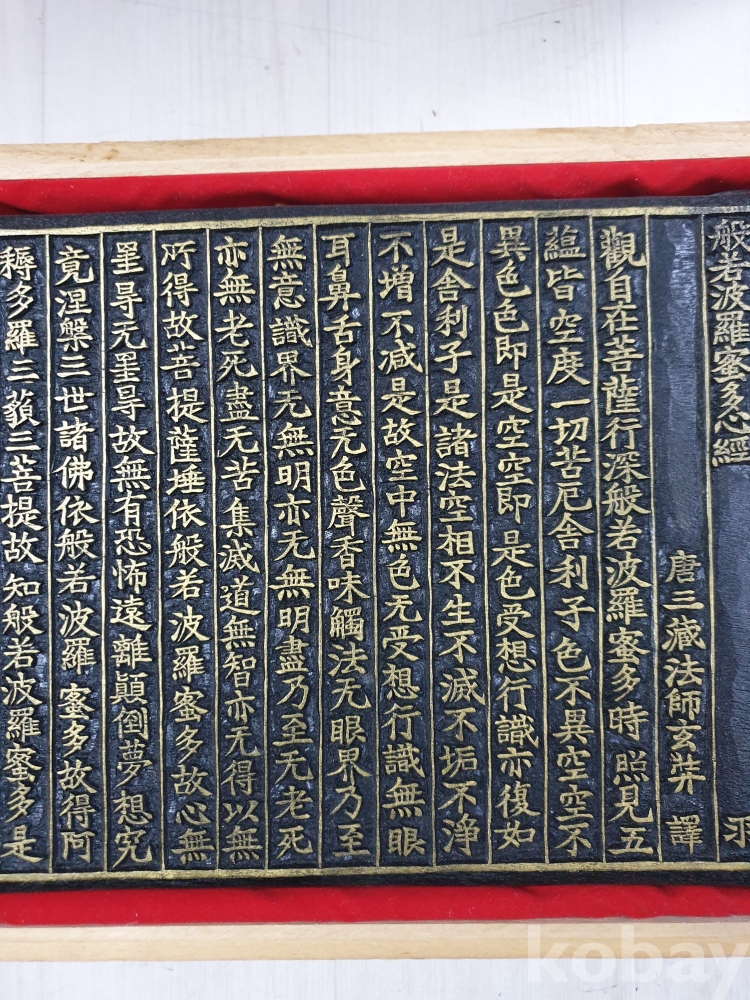 般若波羅蜜多心經
唐三藏法師玄弉 譯
觀自在菩薩行深般若波羅蜜多時 照見五
蘊皆空度一切苦厄舍利子色不異空空不
異色色即是空空即是色受想行識亦復如
是舍利子是諸法空相不生不滅不垢不淨
不增不減是故空中無色无受想行識無眼
耳鼻舌身意无色聲香味觸法无眼界乃至
無意識界无無明亦无無明盡乃至无老死
亦無老死盡无苦集滅道無智亦无得以無
所得故菩提薩埵依般若波羅蜜多故心無
罣㝵无罣㝵故無有恐怖遠離顛倒夢想究
竟涅槃三世諸佛依般若波羅蜜多故得阿
耨多羅三藐三菩提故知般若波羅蜜多是
kobay